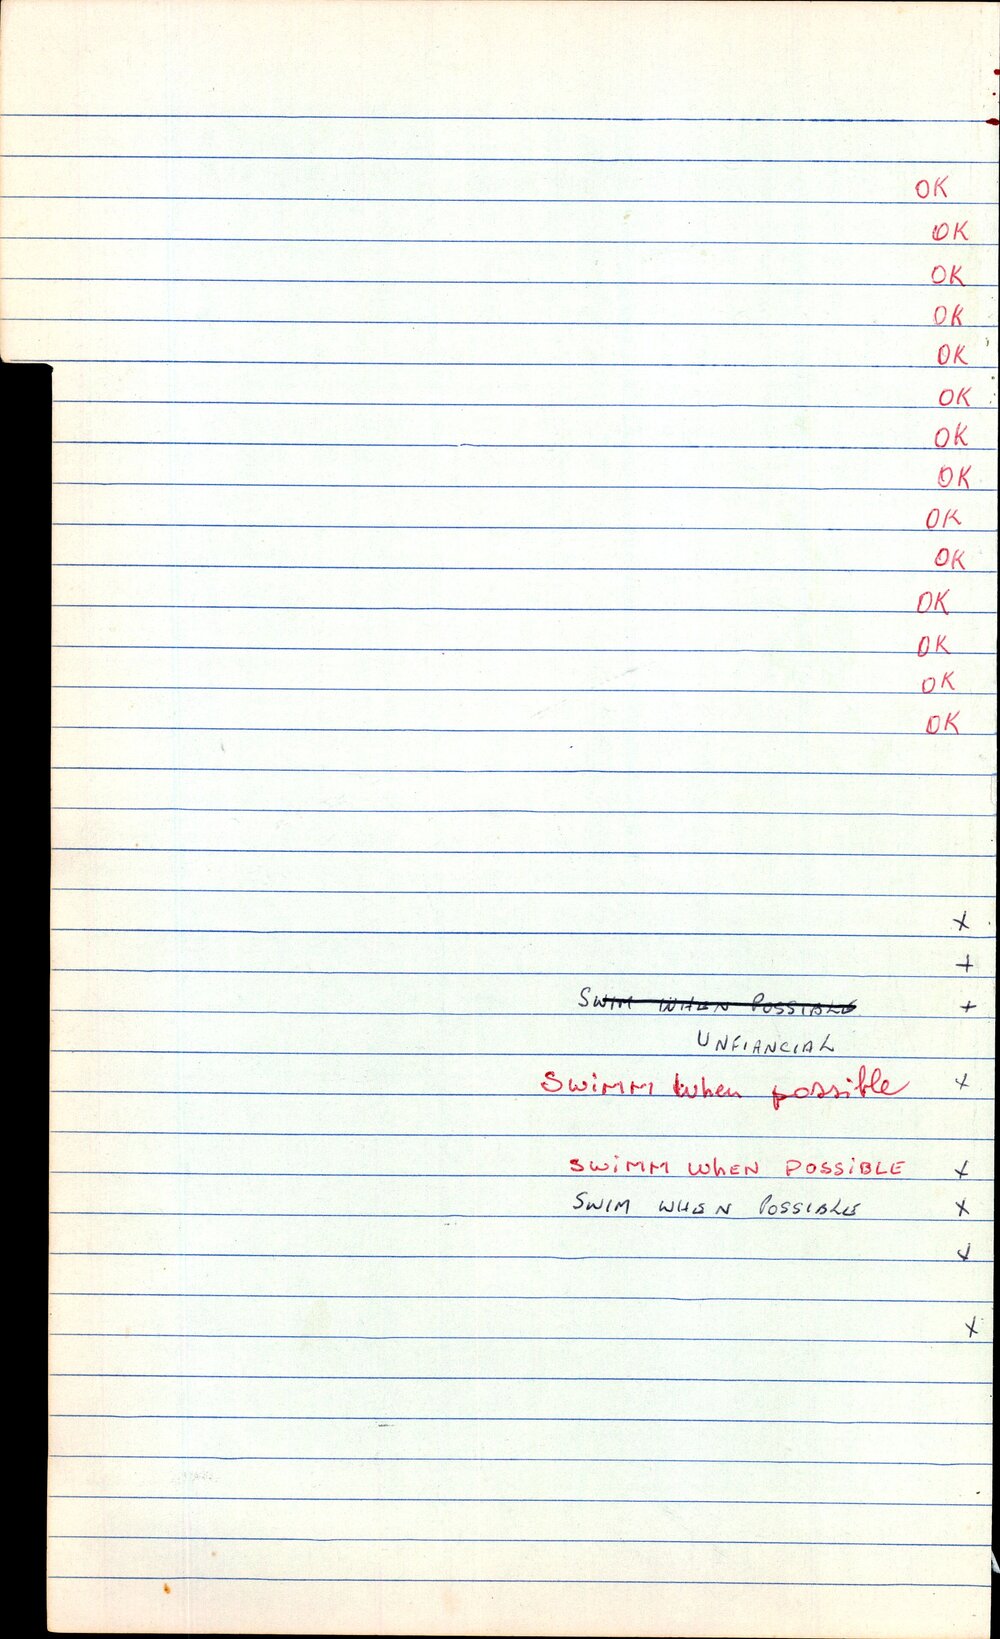 OK
OK
OK
OK
OK
OK
OK
OK
OK
OK
OK
OK
OK
OK
x
+
SWIM WHEN POSSIBLE +
UNFIANCIAL
SWiMM When possible x
SWiMM WhEN POSSiBLE x
SWIM WHEN POSSIBLE x
x
x